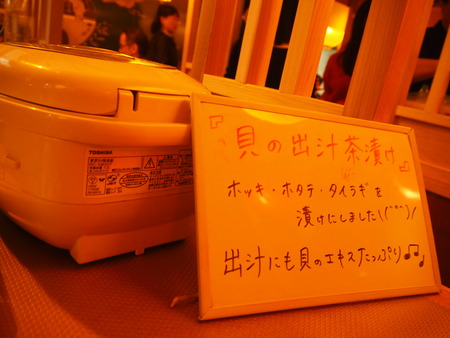 TOSHIBA
『貝の出汁茶漬け』
ホッキ・ホタテ・タイラギを
漬けにしました\(^^)/
出汁にも貝のエキスたっぷり♫♪